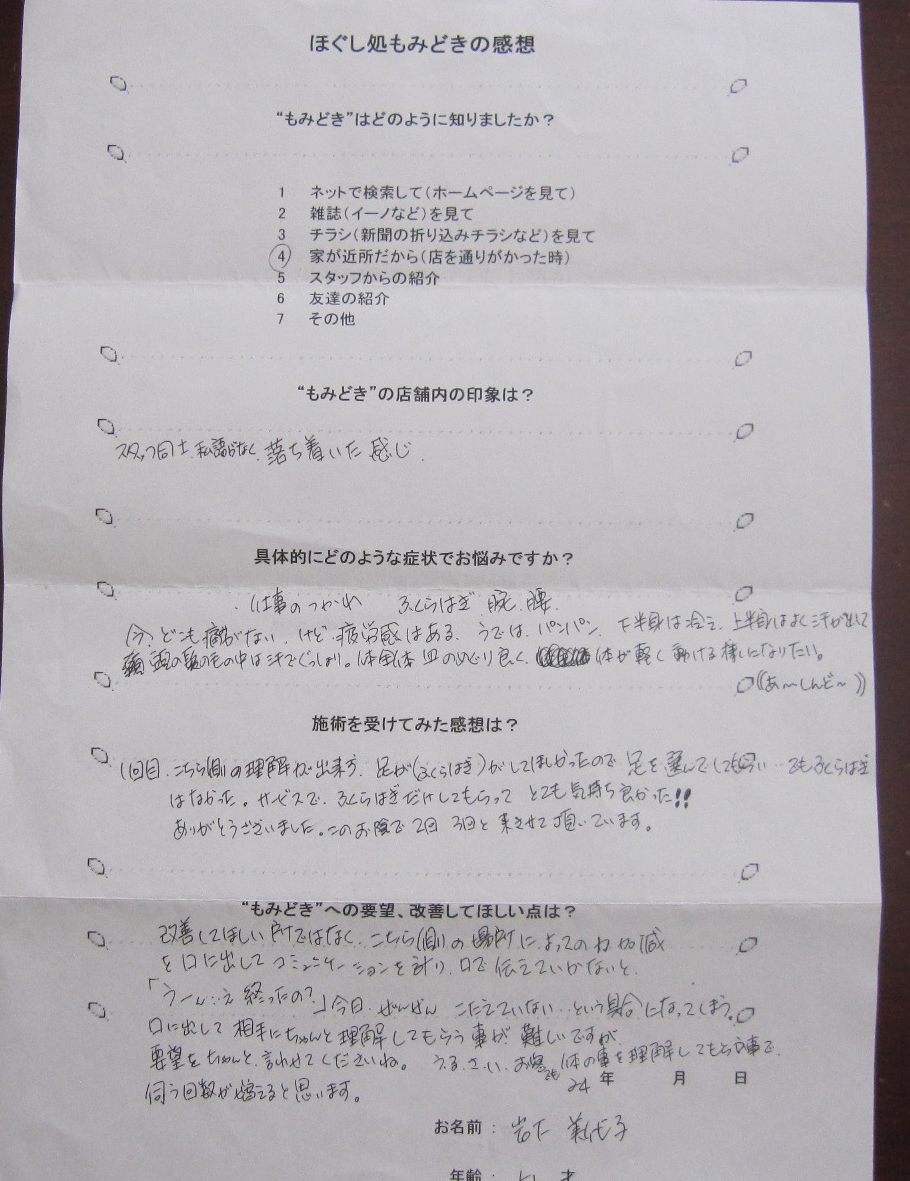 ほぐし処もみどきの感想
“もみどき”はどのように知りましたか？
1 ネットで検索して（ホームページを見て）
2 雑誌（イーノなど）を見て
3 チラシ（新聞の折り込みチラシなど）を見て
4 家が近所だから（店を通りがかった時）
5 スタッフからの紹介
6 友達の紹介
7 その他
“もみどき”の店舗内の印象は？
スタッフ同士、私語がなく、落ち着いた感じ
具体的にどのような症状でお悩みですか？
・仕事のつかれ ふくらはぎ 腕、腰、
今、どこも痛がない、けど、疲労感はある、うでは、パンパン、下半身は冷え、上半身はよく汗が出て
頭の髪の毛の中は汗でぐっしょり。体全体 血のめぐり良く、体が軽く動ける様になりたい。
（（あ～しんど～））
施術を受けてみた感想は？
1回目、こちら側の理解が出来ず、足が（ふくらはぎ）がしてほしかったので 足を選んでしてもらい…でもふくらはぎ
はなかった。サービスで、ふくらはぎだけしてもらって とても気持ち良かった!!
ありがとうございました。このお陰で 2回 3回と 来させて頂いています。
“もみどき”への要望、改善してほしい点は？
改善してほしい所ではなく、こちら側の場所によっての 加減
を口に出して コミュニケーションを計り、口で伝えていかないと、
「うーん…え 終ったの？」今日、ぜんぜん こたえていない…という具合になってしまう。
口に出して 相手にちゃんと理解してもらう事が、難しいですが
要望をちゃんと、言わせてくださいね。 うるさい、お客でも 体の事を理解してもらう事で、
伺う回数が増えると思います。
24 年 月 日
お名前： 岩下 美代子
年齢： 才